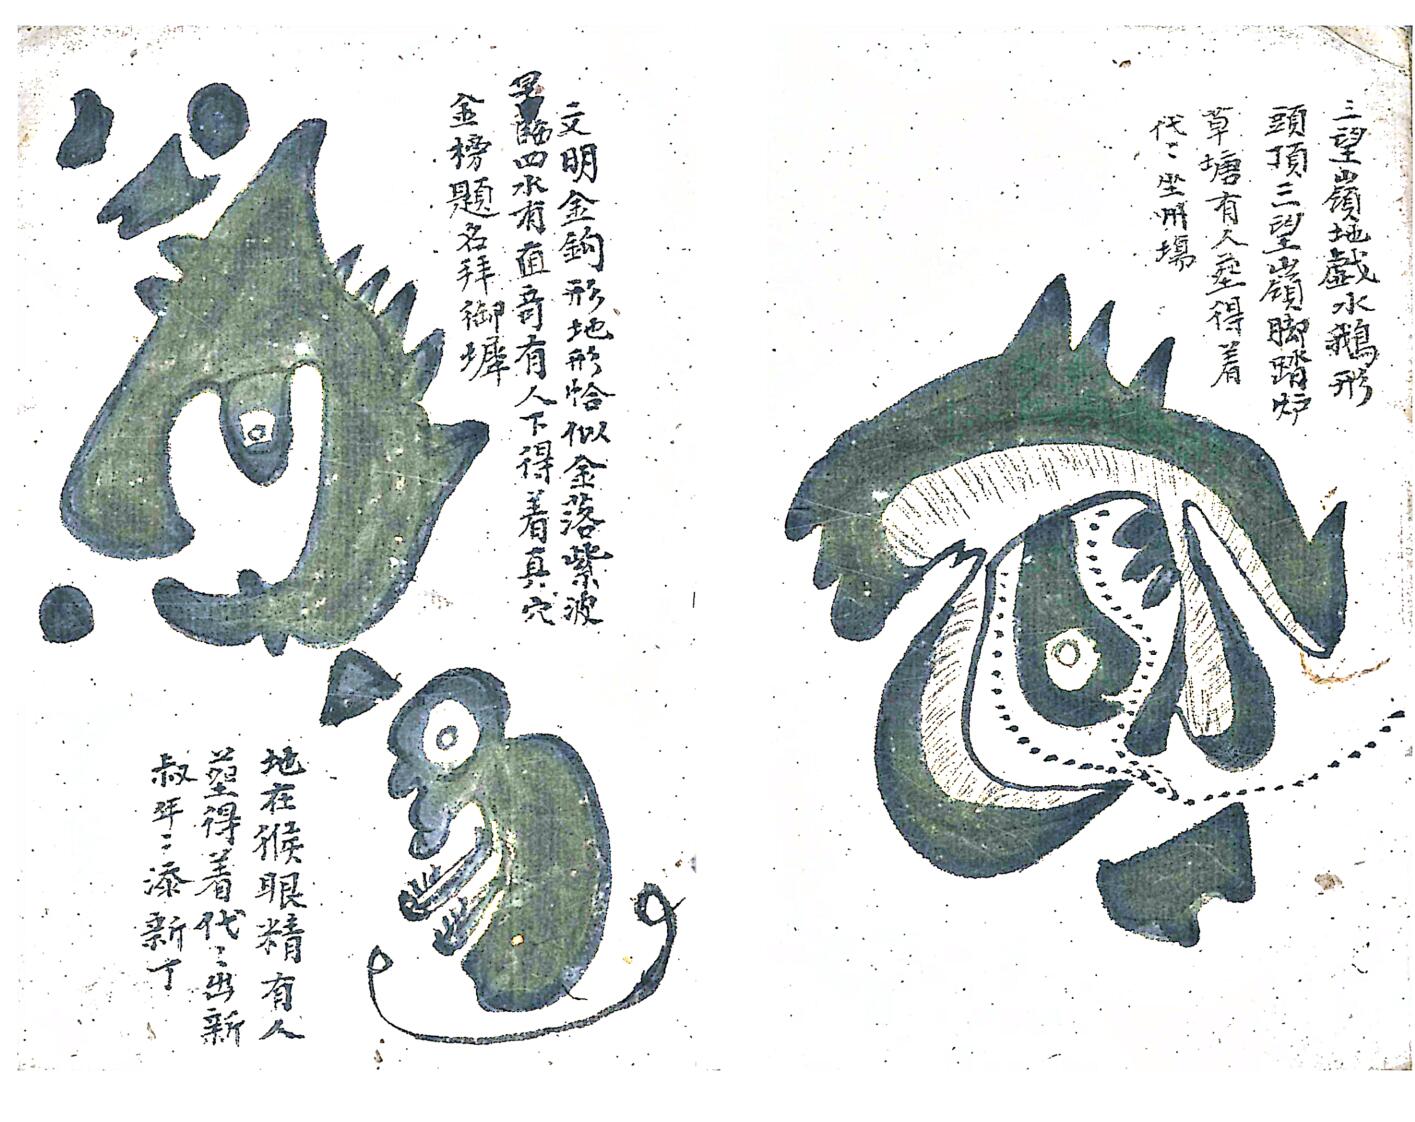 三望嶺地戯水鵝形
頭頂三望嶺脚踏炉
草塘有人塟得着
代々坐
文明金鈎形地形恰似金落紫波
四水有直奇有人下得着真穴
金榜題名拜御墀
地在猴眼精有人
塟得着代々出新
叔年々添新丁